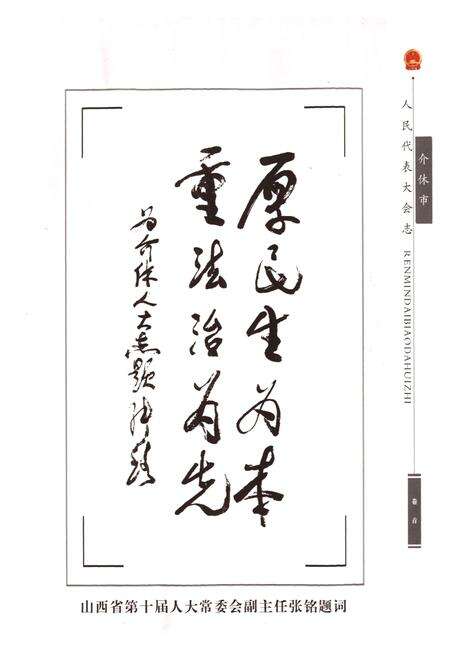 厚民生为本
重法治为先
为介休人大志题 张铭
山西省第十届人大常委会副主任张铭题词
介休市
人民代表大会志
RENMINDAIBIAODAHUIZHI
卷首